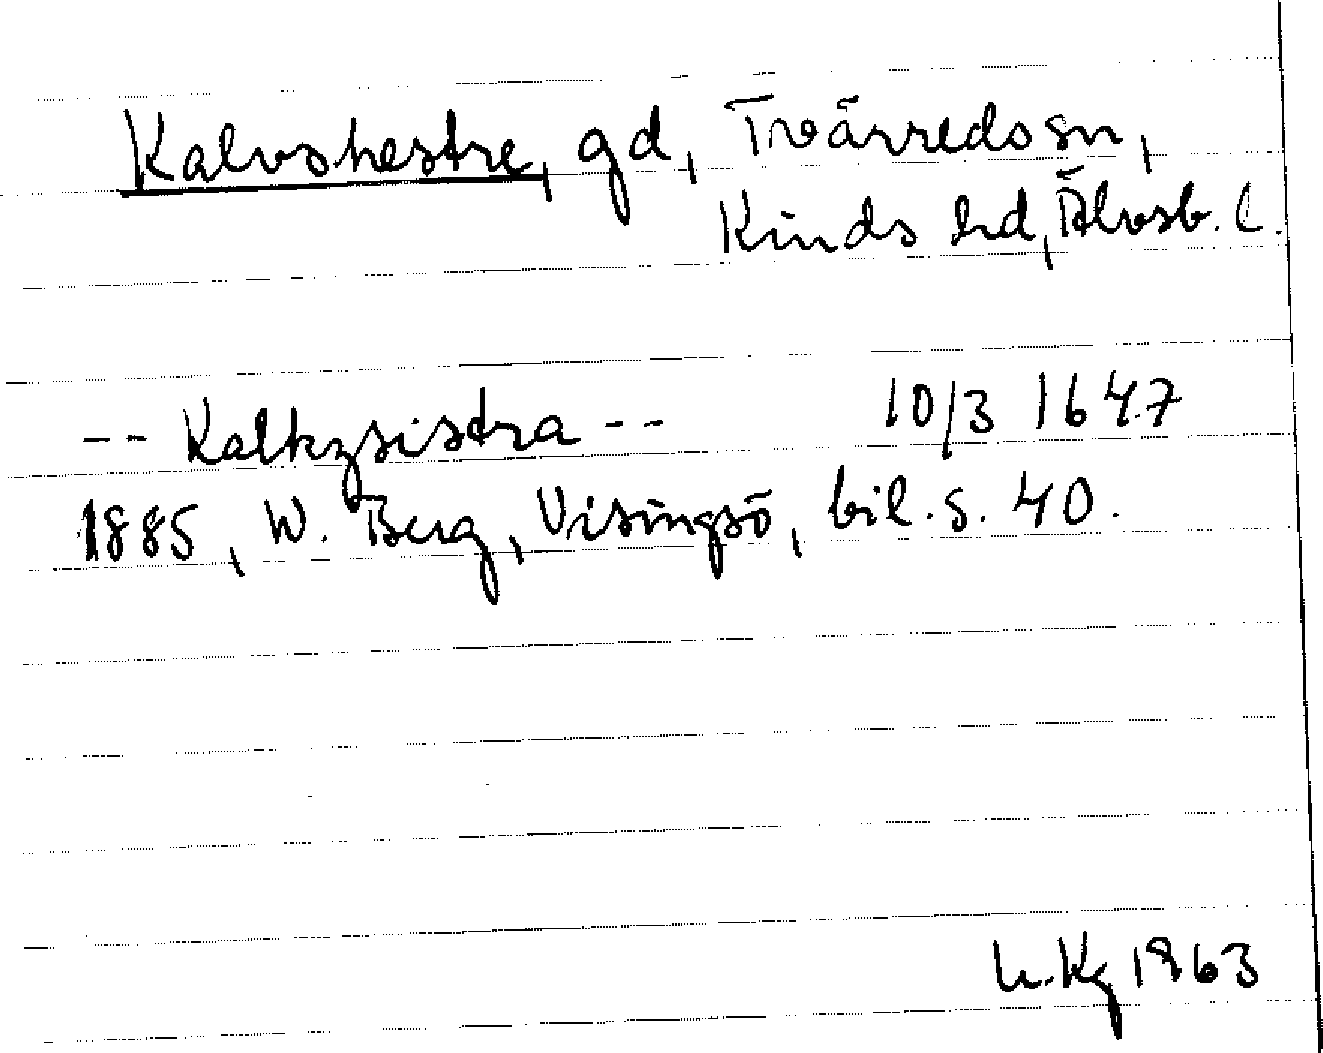 Kalvshestre, gd, Tvärreds sn,
Kinds hd, Älvsb. l.
-- Kalkzsistra -- 10/3 1647
1885, W. Berg, Visingsö, bil. s. 40.
1963